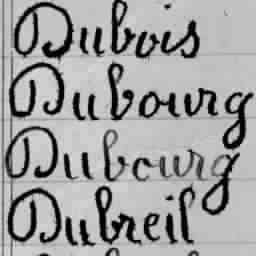 Dubois
Dubourg
Dubourg
Dubreil